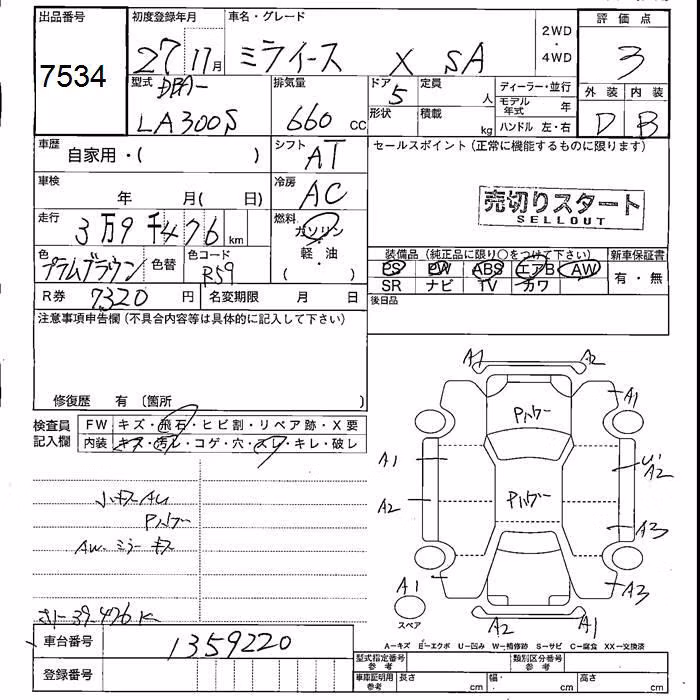 出品番号
7534
初度登録年月
27 11月
車名・グレード
ミライース X SA
2WD
・
4WD
評価点
3
外装 内装
D B
型式
DBA-
LA300S
排気量
660 cc
ドア
5
形状
定員
人
積載
kg
ディーラー・並行
モデル年式 年
ハンドル 左・右
車歴
自家用・( )
シフト
AT
車検
年 月( 日)
冷房
AC
走行
3万9千476 km
燃料
ガソリン
軽・油
( )
色
プラムブラウン
色替
色コード
R59
R券 7320 円
名変期限 月 日
セールスポイント(正常に機能するものに限ります)
売切りスタート
SELLOUT
装備品(純正品に限り○をつけて下さい)
PS PW ABS エアB AW
SR ナビ TV カワ
新車保証書
有・無
後日品
注意事項申告欄(不具合内容等は具体的に記入して下さい)
修復歴 有(箇所 )
検査員
記入欄
FW キズ・飛石・ヒビ割・リペア跡・X要
内装 キズ・汚レ・コゲ・穴・スレ・キレ・破レ
小キズAU
Pハゲー
AW・ミラーキズ
39-476K
車台番号 1359220
登録番号
A1 A2
A1
Pハゲー
A1
A2
A2
Pハゲー
A3
A1
A3
スペア
A2 A1
A=キズ E=エクボ U=凹み W=補修跡 S=サビ C=腐食 XX=交換済
型式指定番号
参考
類別区分番号
参考
車庫証明用
参考
長さ cm
幅 cm
高さ cm